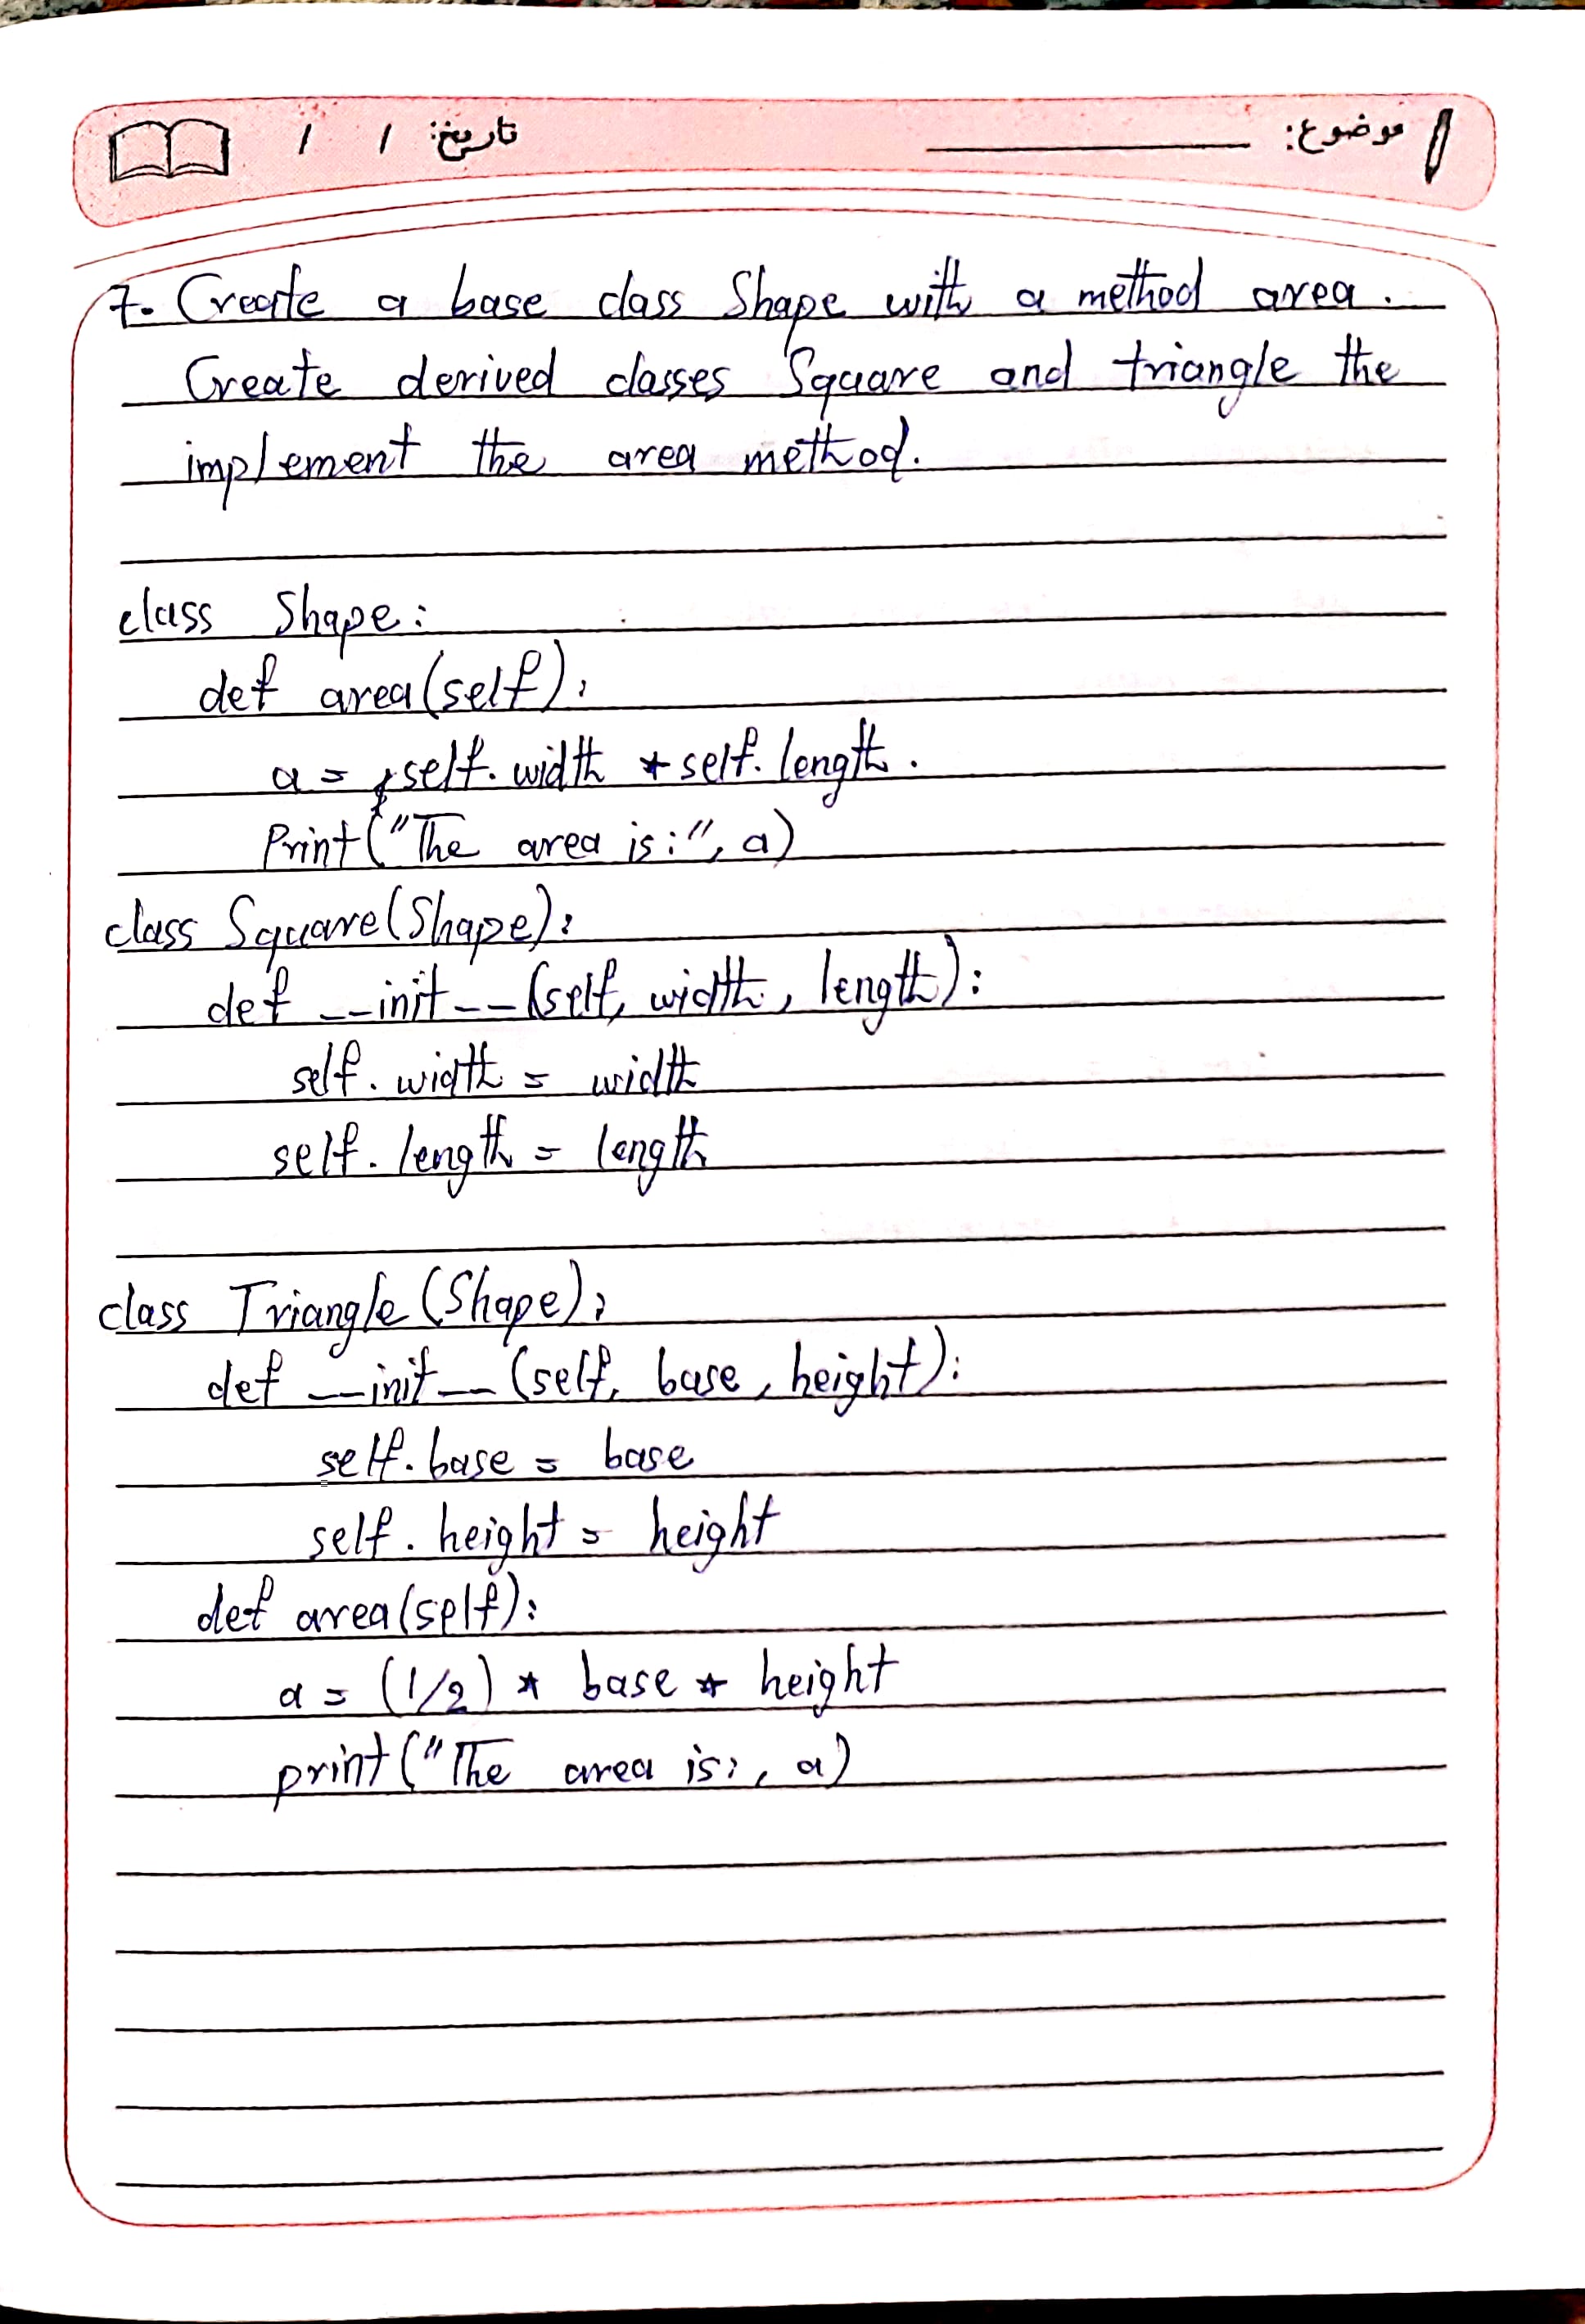 موضوع:
تاریخ: / /
7. Create a base class Shape with a method area.
Create derived classes Square and triangle the
implement the area method.
class Shape:
def area(self):
a = self.width * self.length.
Print("The area is:", a)
class Square(Shape):
def __init__(self, width, length):
self.width = width
self.length = length
class Triangle(Shape):
def __init__(self, base, height):
self.base = base
self.height = height
def area(self):
a = (1/2) * base * height
print("The area is:, a)